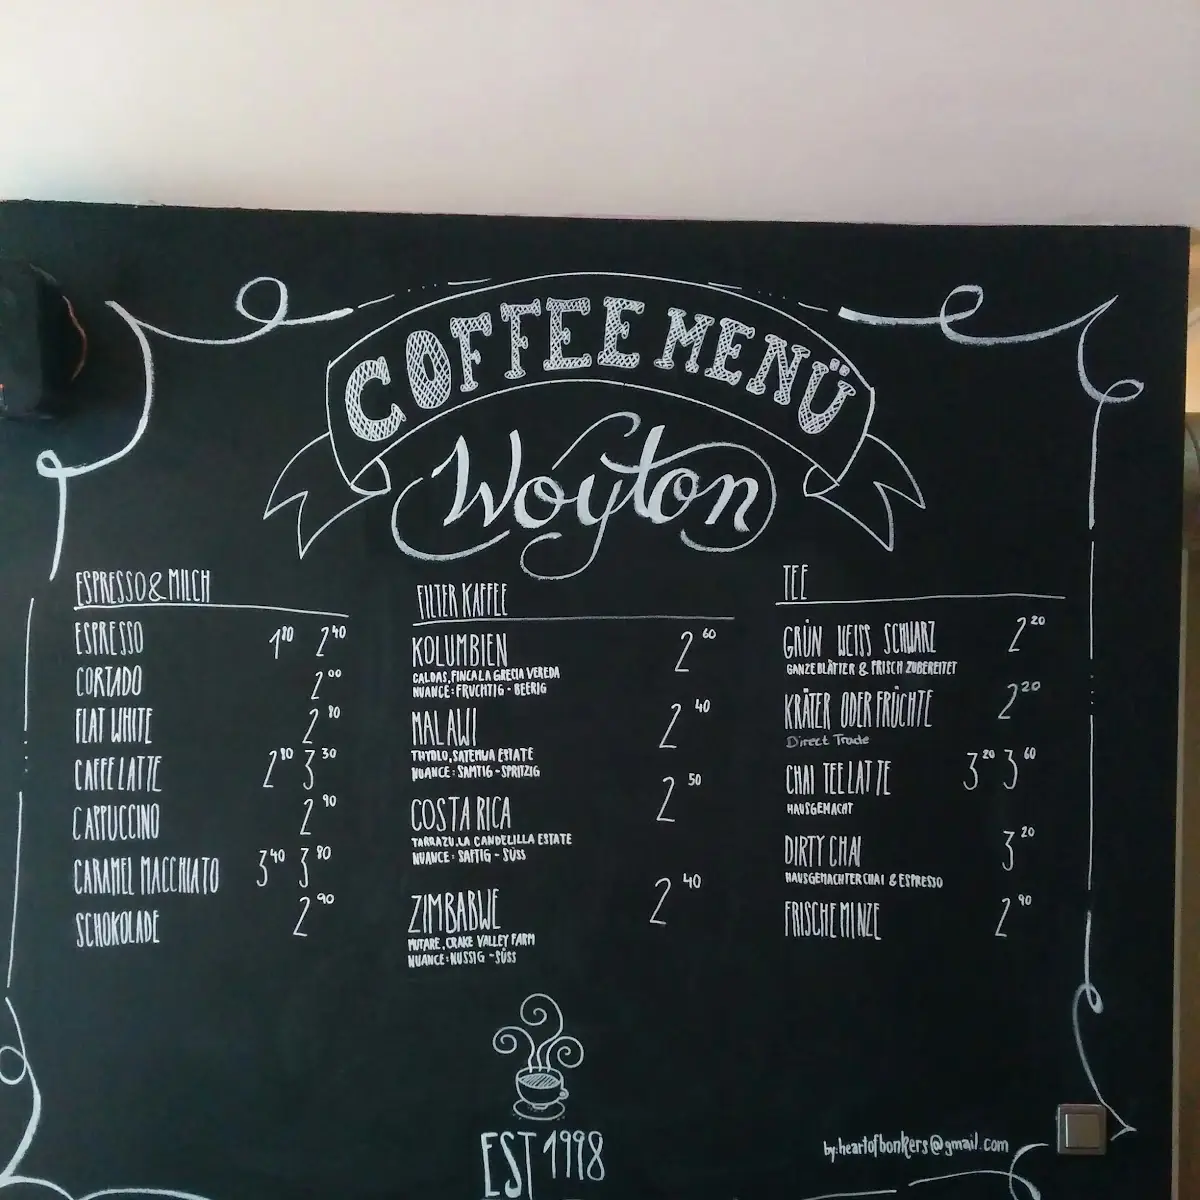 COFFEE MENÜ
Woyton
ESPRESSO & MILCH
ESPRESSO 1 80 2 40
CORTADO 2 00
FLAT WHITE 2 80
CAFFE LATTE 2 80 3 30
CAPPUCCINO 2 90
CARAMEL MACCHIATO 3 40 3 80
SCHOKOLADE 2 90
FILTER KAFFEE
KOLUMBIEN 2 60
CALDAS, FINCA LA GRECIA VEREDA
NUANCE: FRUCHTIG - BEERIG
MALAWI 2 40
THYOLO, SATEMWA ESTATE
NUANCE: SAMTIG - SPRITZIG
COSTA RICA 2 50
TARRAZU, LA CANDELILLA ESTATE
NUANCE: SAFTIG - SÜSS
ZIMBABWE 2 40
MUTARE, CRAKE VALLEY FARM
NUANCE: NUSSIG - SÜSS
TEE
GRÜN WEISS SCHWARZ 2 20
GANZE BLÄTTER & FRISCH ZUBEREITET
KRÄTER ODER FRÜCHTE 2 20
Direct Trade
CHAI TEE LATTE 3 20 3 60
HAUSGEMACHT
DIRTY CHAI 3 20
HAUSGEMACHTER CHAI & ESPRESSO
FRISCHE MINZE 2 90
EST 1998
by: heartofbonkers@gmail.com